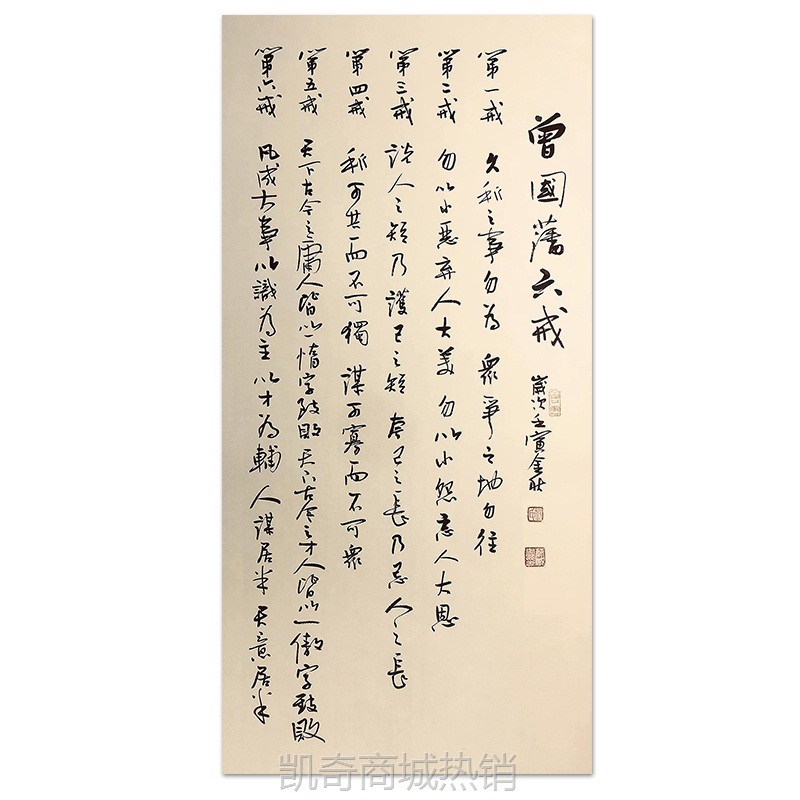 曾國藩六戒
歲次壬寅金秋
第一戒 久利之事勿為 眾爭之地勿往
第二戒 勿以小惡棄人大美 勿以小怨忘人大恩
第三戒 談人之短乃護己之短 夸己之長乃忌人之長
第四戒 利可共而不可獨 謀可寡而不可眾
第五戒 天下古今之庸人皆以一惰字致敗 天下古今之才人皆以一傲字致敗
第六戒 凡成大事以識為主 以才為輔 人謀居半 天意居半
凯奇商城热销